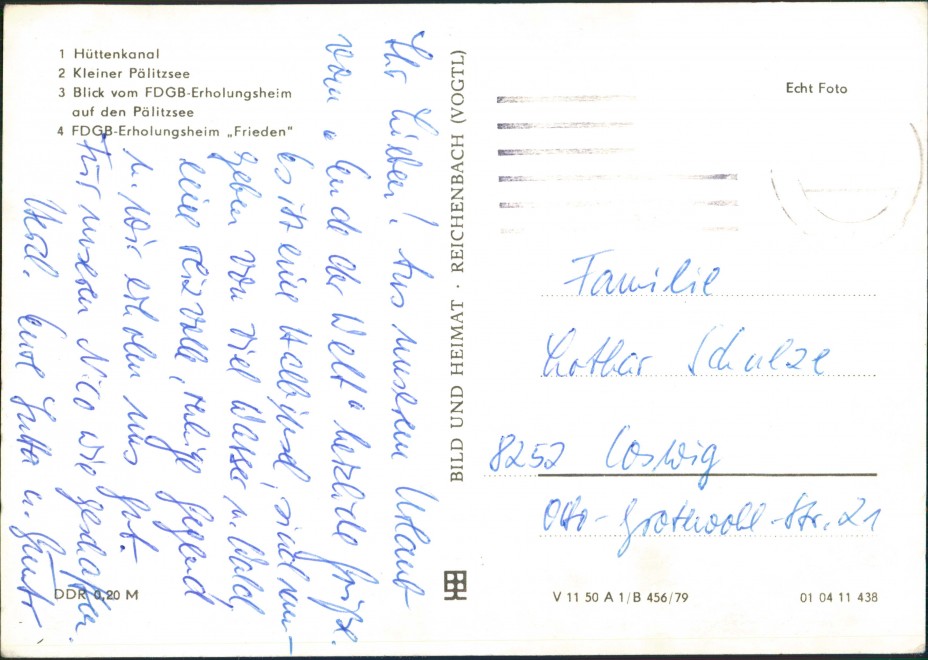 1 Hüttenkanal
2 Kleiner Pälitzsee
3 Blick vom FDGB-Erholungsheim
auf den Pälitzsee
4 FDGB-Erholungsheim „Frieden"
Ihr Lieben! Aus unserem Urlaub
vom „Ende der Welt" herzliche Grüße.
Es ist eine Halbinsel, sind um-
geben von viel Wasser u. Wald,
eine reizvolle, ruhige Gegend
u. wir erholen uns gut.
Für unseren Nico wie geschaffen.
Herzl. Eure Jutta u. Günter
DDR 0,20 M
BILD UND HEIMAT · REICHENBACH (VOGTL)
Echt Foto
Familie
Lothar Schulze
8252 Coswig
Otto-Grotewohl-Str. 21
V 11 50 A 1/B 456/79
01 04 11 438